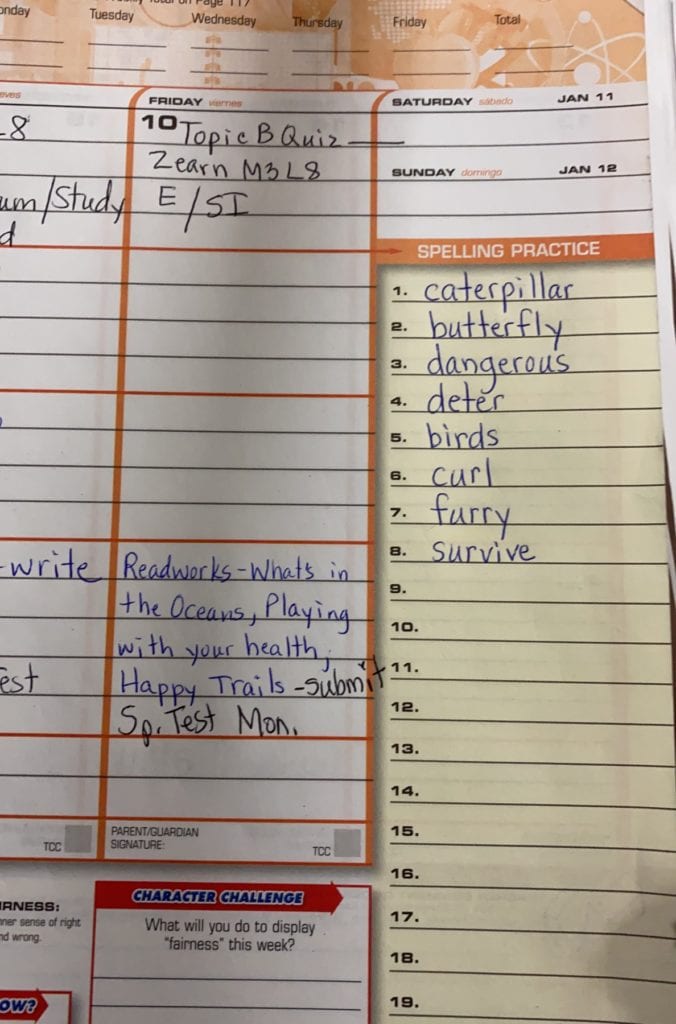 onday Tuesday Wednesday Thursday Friday Total
on Page 117
eves
-8
um/Study
d
-write
est
TCC
FRIDAY viernes
10 Topic B Quiz
Zearn M3 L8
E/SI
Readworks-Whats in
the Oceans, Playing
with your health,
Happy Trails -submit
Sp. Test Mon.
PARENT/GUARDIAN
SIGNATURE:
TCC
SATURDAY sábado JAN 11
SUNDAY domingo JAN 12
SPELLING PRACTICE
1. caterpillar
2. butterfly
3. dangerous
4. deter
5. birds
6. curl
7. furry
8. survive
9.
10.
11.
12.
13.
14.
15.
16.
17.
18.
19.
IRNESS:
nner sense of right
nd wrong.
OW?
CHARACTER CHALLENGE
What will you do to display
"fairness" this week?